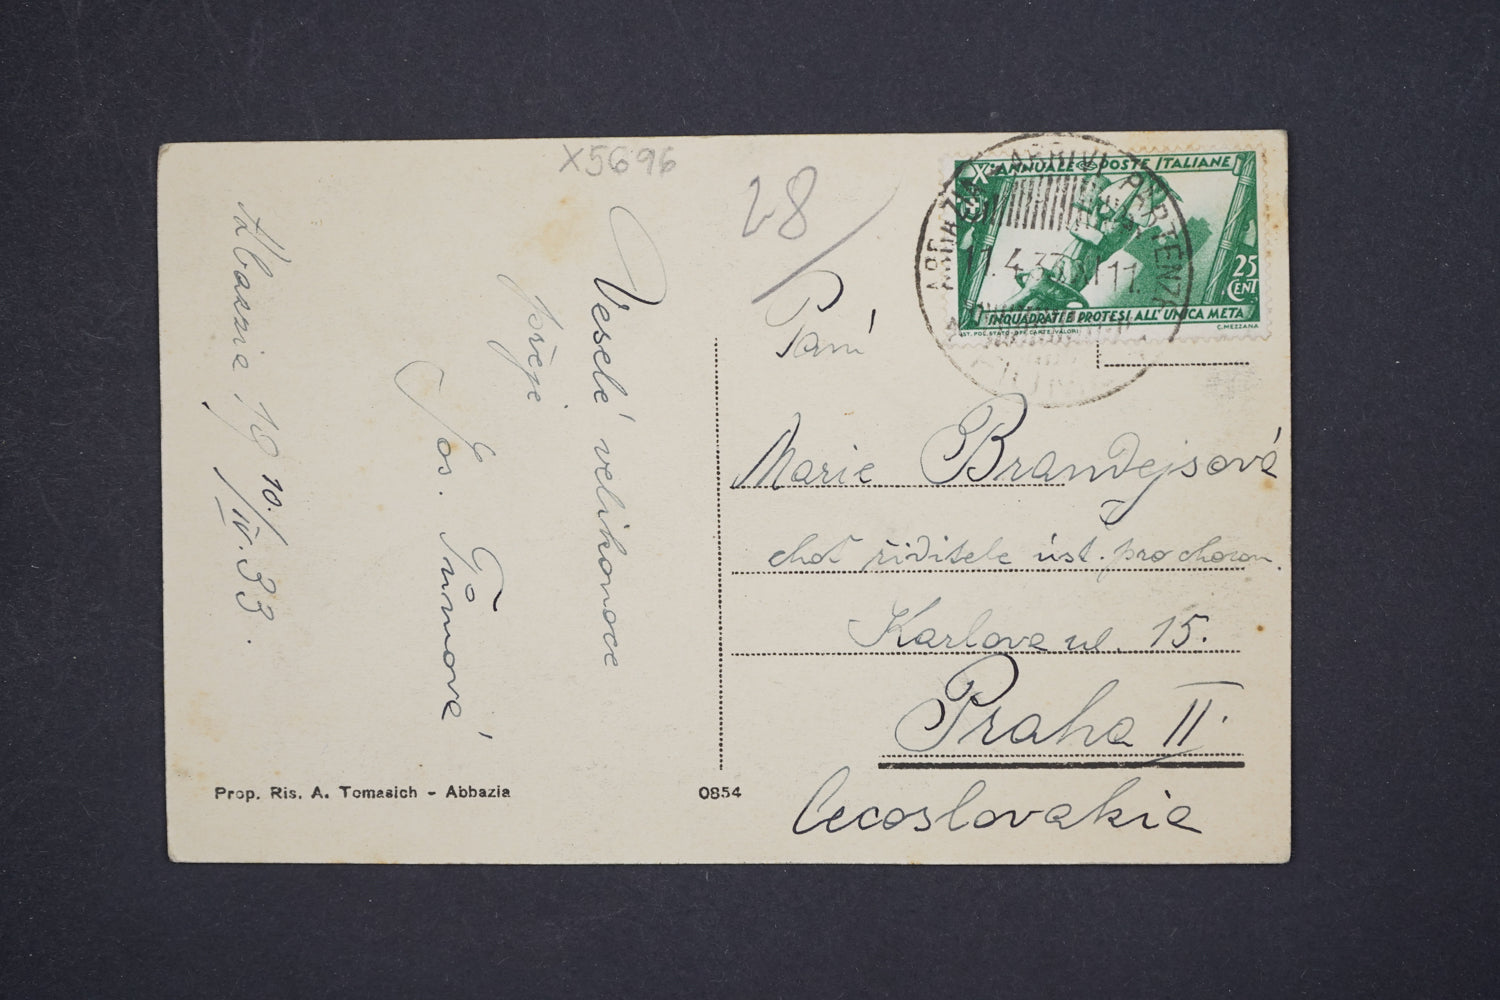 X5696
28
X° ANNUALE POSTE ITALIANE
25
CENT
INQUADRATI E PROTESI ALL'UNICA META
IST. POL. STATO-OFF. CARTE VALORI
C. MEZZANA
ABBAZIA ARRIVI PARTENZA
11.4.33.XI 11.
Abazzia
10./IV.33.
Veselé velikonoce
přeje
Jos. Tůmová
Paní
Marie Brandejsová
choť ředitele úst. pro choron.
Karlova ul. 15.
Praha II.
Cecoslovakia
Prop. Ris. A. Tomasich - Abbazia
0854